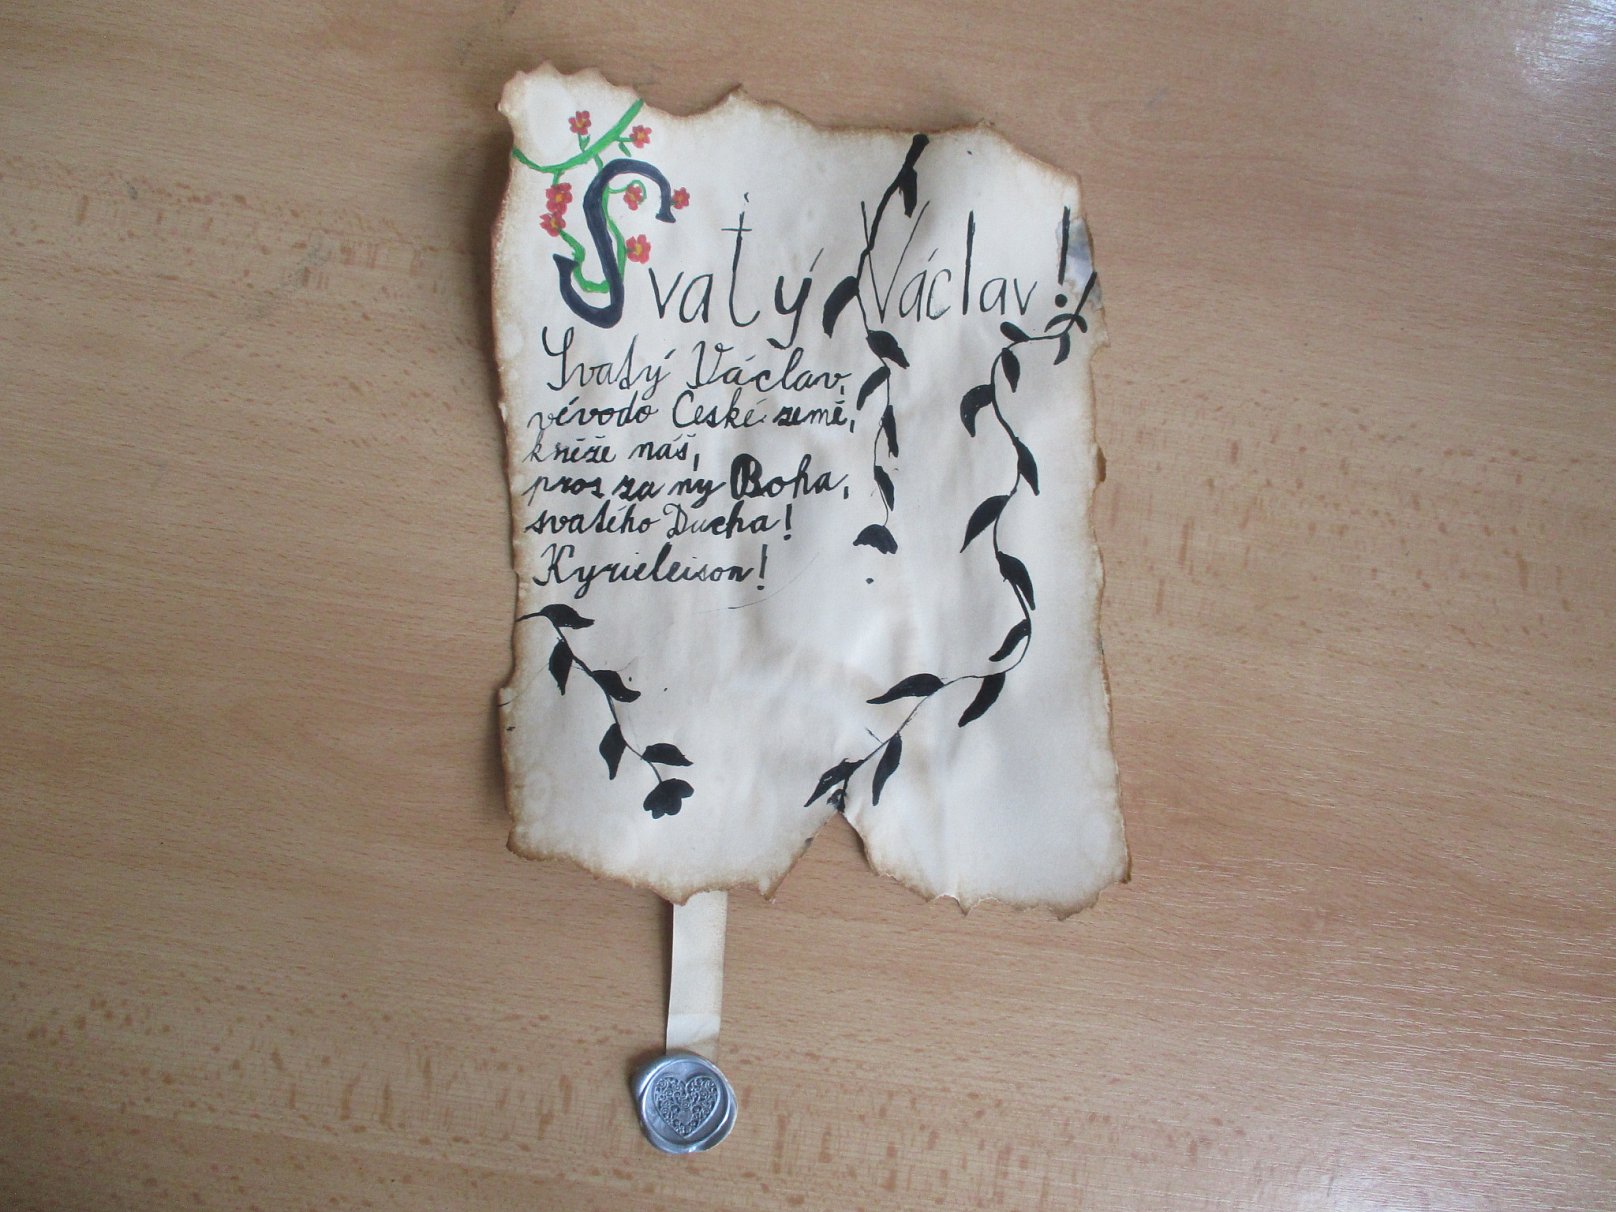 Svatý Václav!
Svatý Václav,
vévodo České země,
kněže náš,
pros za ny Boha,
svatého Ducha!
Kyrieleison!